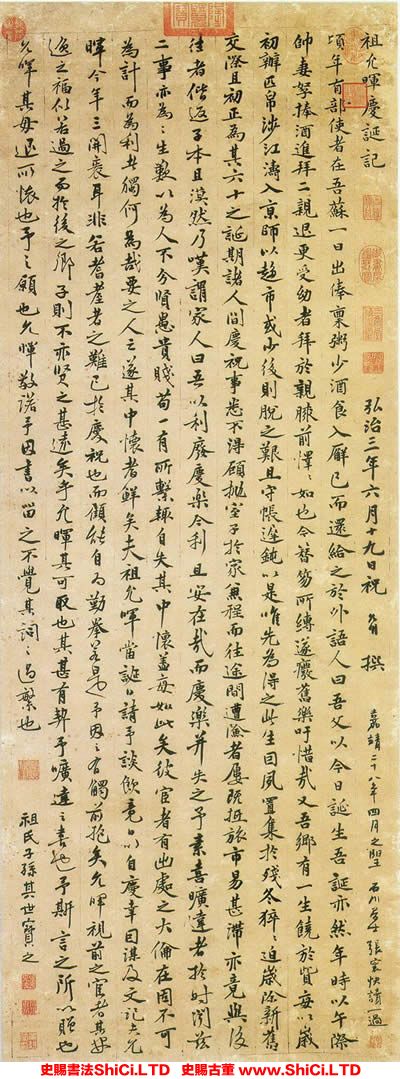 祖允暉慶誕記
弘治三年六月十九日祝 允明 撰
嘉靖二十八年四月之望 石川 張寰快讀一過
頃年有部使者在吾蘇一日出俸稟粥少酒食入廨已而還給之於外語人曰吾父以今日誕生吾誕亦然年時以午際
帥妻孥捧酒進拜二親退更受幼者拜於親膝前懌懌如也今督笏所縛遂癈舊樂吁惜哉又吾鄉有一生饒於貲每以歲
初辦匹帛涉江濤入京師以趨市或少後則脫之艱且守帳遲鈍以是唯先為得之此生因夙置集於殘冬猝猝迫歲除新舊
交際且初正為其六十之誕期諸人間慶祝事悉不得顧拋室子於家無程而往途間遭淪者屢既抵旅市易甚滯亦竟與後
往者偕返子本且漠然乃嘆謂家人曰吾以利廢慶樂今利且安在哉而慶樂并失之予素喜曠達者於時閱茲
二事亦為之生歎以為人不分賢愚貴賤苟一有所繫輒自失其中懷蓋每如此矣彼宦者有出處之大倫在固不可
為計而為利者獨何為哉要之人之遂其中懷者鮮矣夫祖允暉當誕日請予談飲竟日以自慶幸因謀及文記之允
暉今年三開袠耳非若耆耋者之難已於慶祝也而顧能自為勤拳若是予因之有觸前抱矣允暉視前之宦者其安
逸之福似若過之而於後之鄉子則不亦賢之甚遠矣乎允暉真可取也其甚有契予曠達之喜也予斯言之所以贈也
允暉其毋退所懷也予之願也允暉敬諾予因書以留之不覺其詞之過繁也
祖氏子孫其世寶之
史賜書法ShiCi.LTD 史賜古董 www.ShiCi.LTD